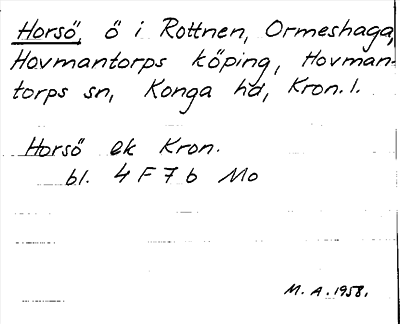 Horsö, ö i Rottnen, Ormeshaga,
Hovmantorps köping, Hovman-
torps sn, Konga hd, Kron. l.
Horsö ek Kron.
bl. 4 F 7 b Mo
M. A. 1958.